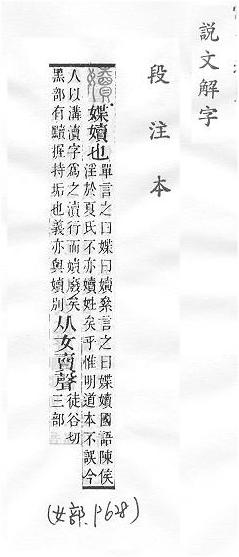 說文解字
段注本
嬻
媟嬻也
單言之曰媟曰嬻絫言之曰媟嬻國語陳侯
淫於夏氏不亦嬻姓矣乎惟明道本不誤今
人以溝瀆字爲之瀆行而嬻廢矣
黑部有黷握持垢也義亦與嬻別
从女𧶠聲
徒谷切
三部
(女部.P628)